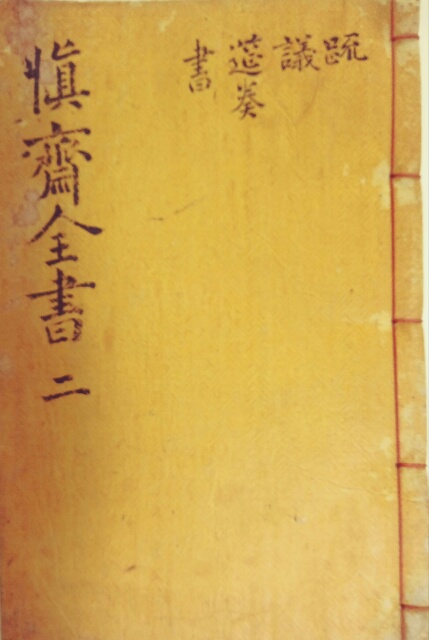 疏
議
筵奏
書
愼齋全書 二